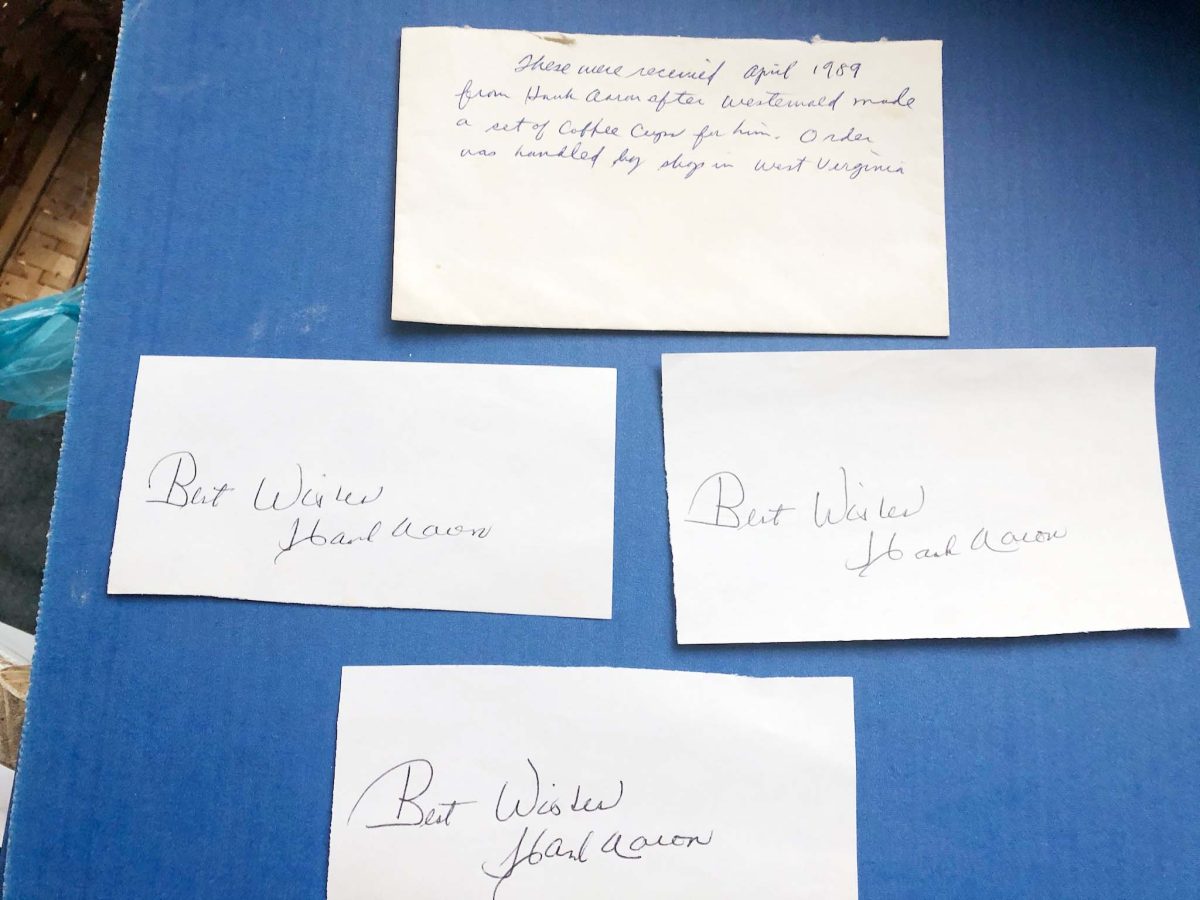 These were received April 1989
from Hank Aaron after Westerwald made
a set of Coffee Cups for him. Order
was handled by shop in West Virginia
Best Wishes
Hank Aaron
Best Wishes
Hank Aaron
Best Wishes
Hank Aaron